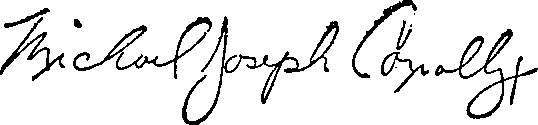 Michael Joseph Connolly